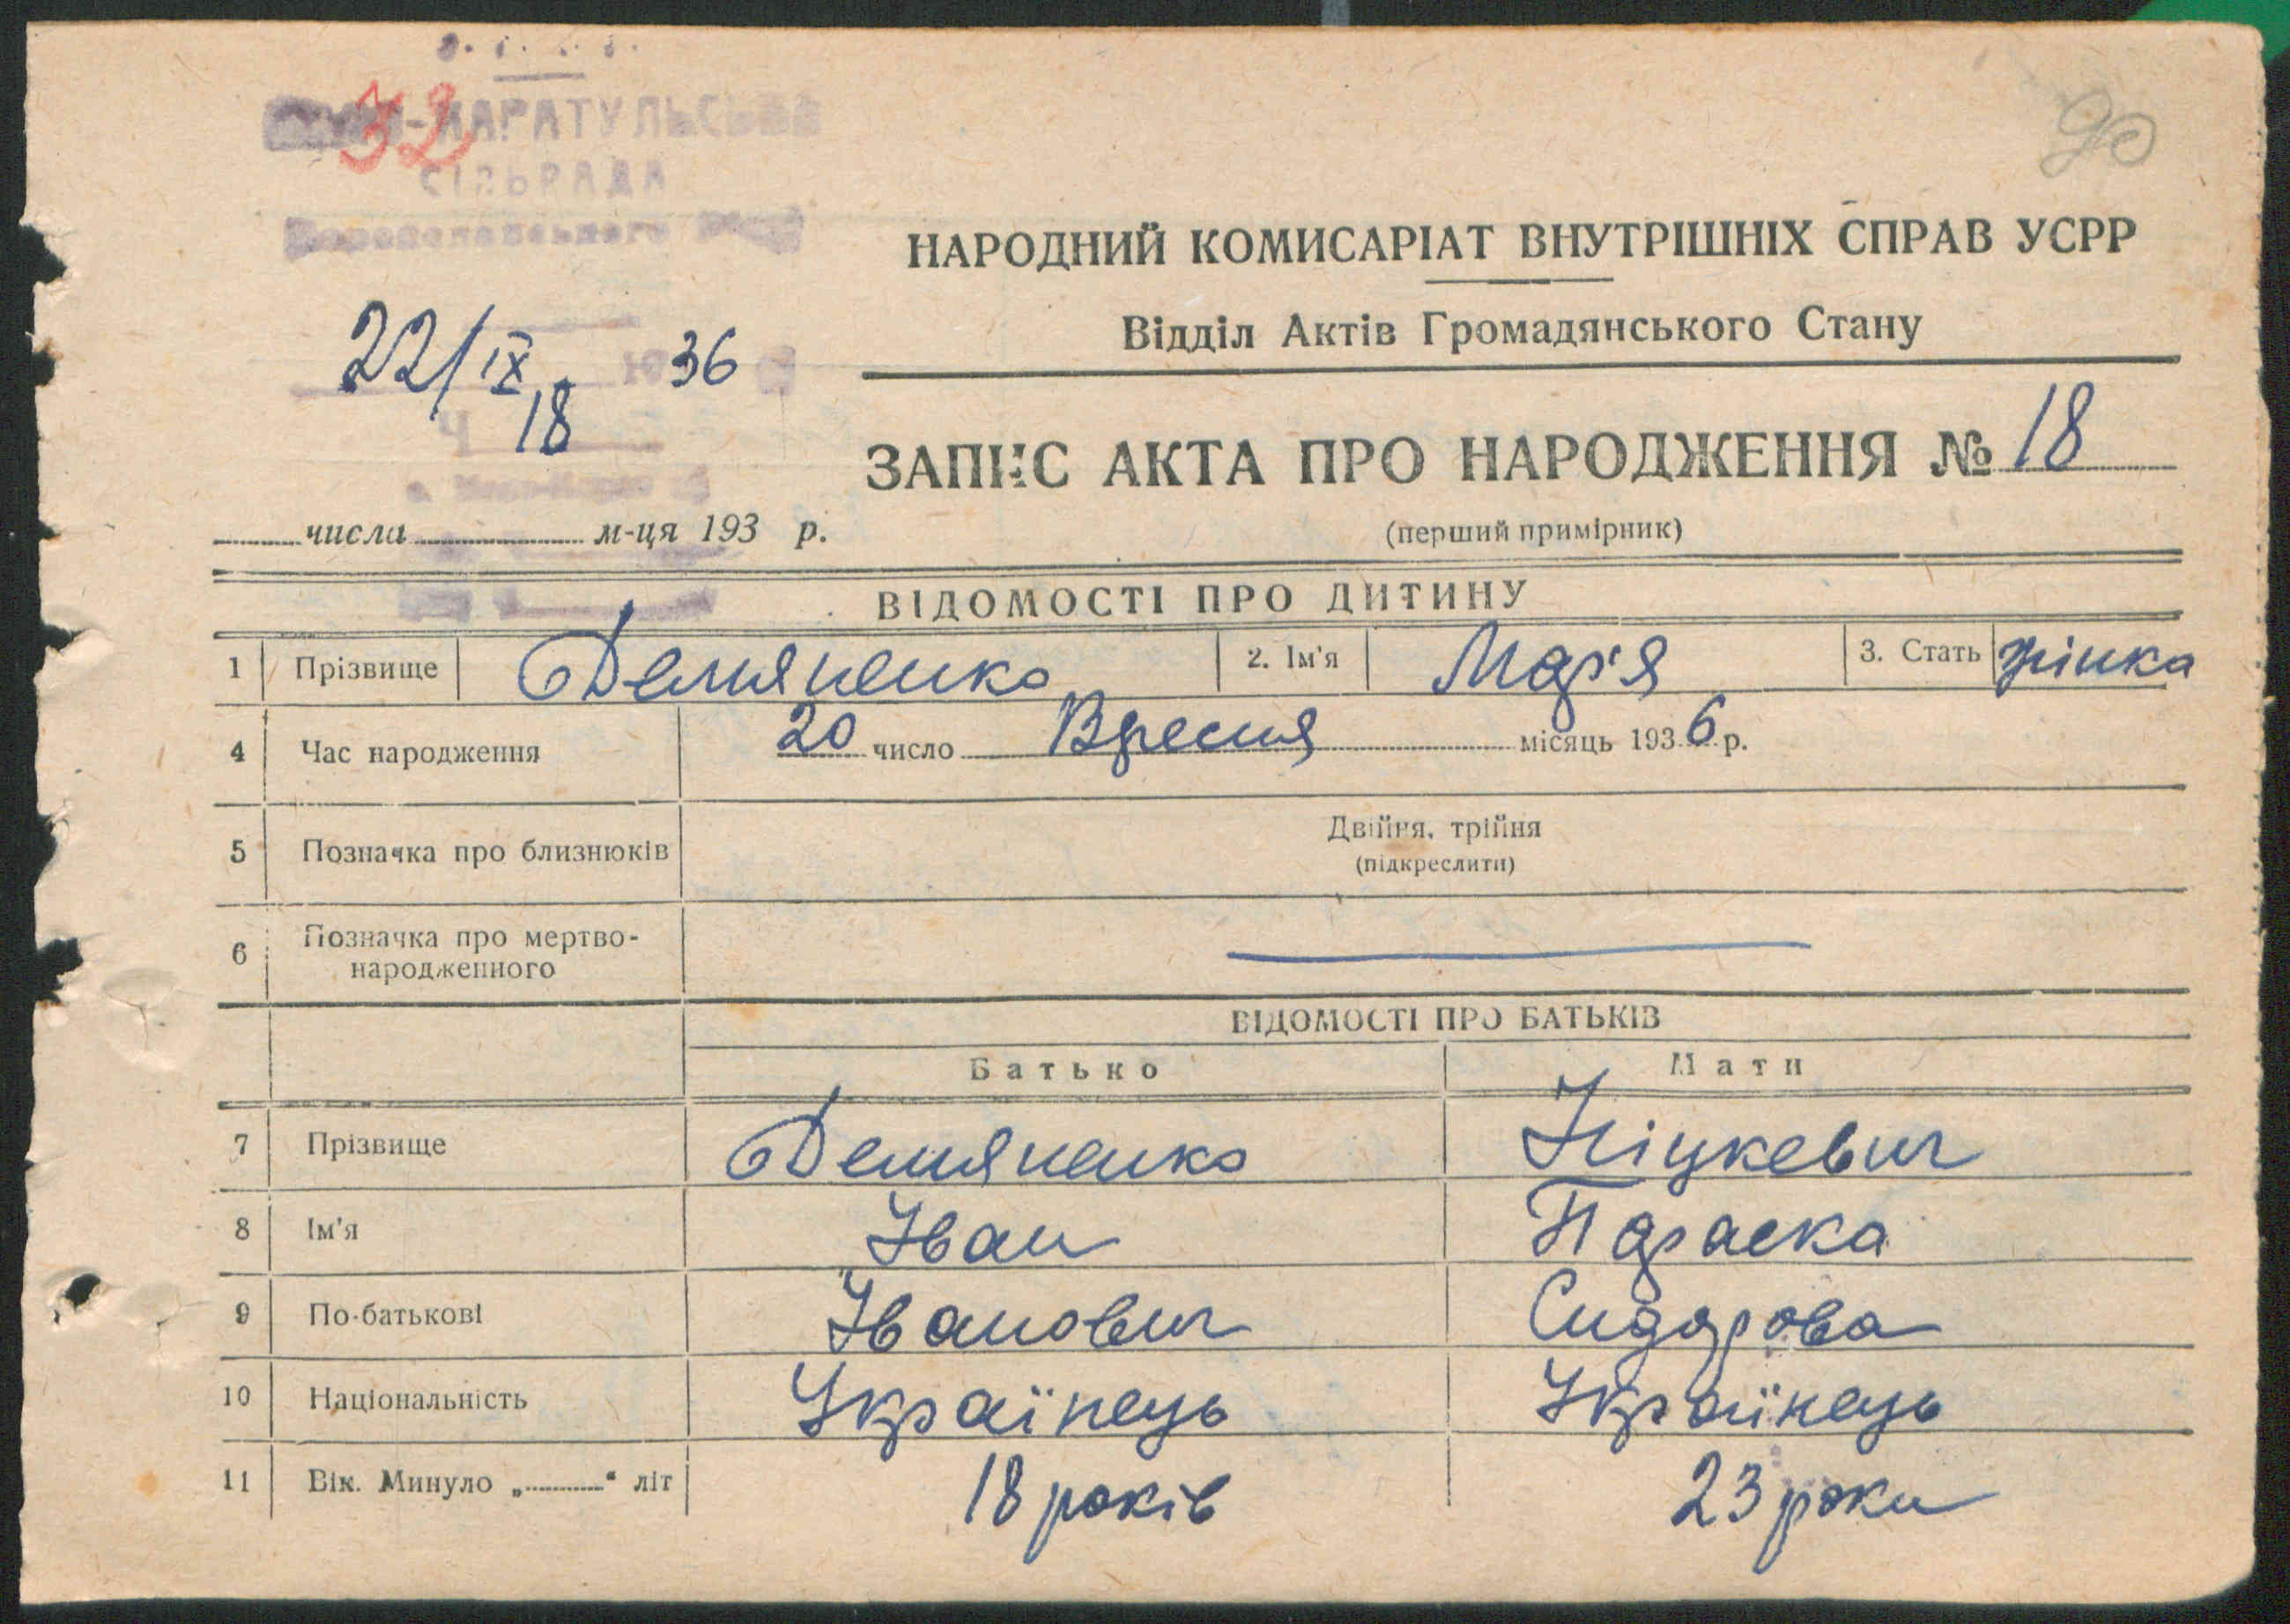 32
-КАРАТУЛЬСЬКА
СІЛЬРАДА
90
НАРОДНИЙ КОМИСАРІАТ ВНУТРІШНІХ СПРАВ УСРР
Відділ Актів Громадянського Стану
22/IX 36
18
ЗАПИС АКТА ПРО НАРОДЖЕННЯ № 18
(перший примірник)
числа м-ця 193 р.
ВІДОМОСТІ ПРО ДИТИНУ
1 Прізвище Демяненко 2. Ім'я Мар'я 3. Стать жінка
4 Час народження 20 число Вресня місяць 1936 р.
5 Позначка про близнюків Двійня, трійня
(підкреслити)
6 Позначка про мертво-
народженного
ВІДОМОСТІ ПРО БАТЬКІВ
Батько Мати
7 Прізвище Демяненко Ніцкевич
8 Ім'я Іван Параска
9 По-батькові Іванович Сидорова
10 Національність Українець Українець
11 Вік. Минуло „ “ літ 18 років 23 роки